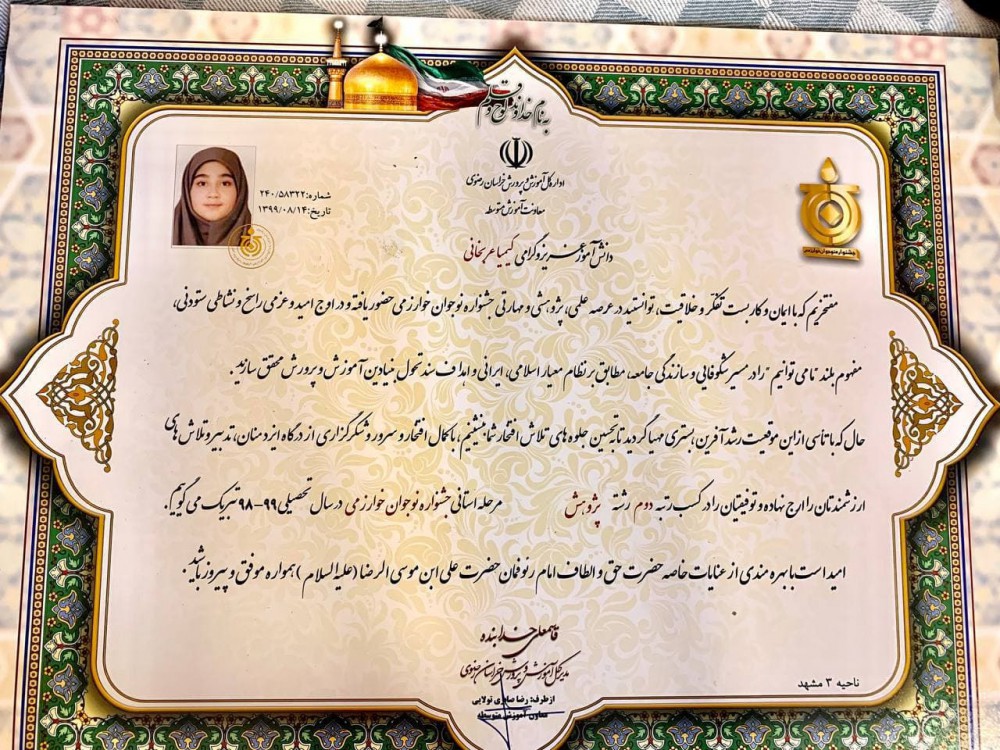 به نام خداوند لوح و قلم
اداره کل آموزش و پرورش خراسان رضوی
معاونت آموزش متوسطه
شماره: ۲۴۰/۵۸۳۲۲
تاریخ: ۱۳۹۹/۰۸/۱۴
دانش آموز عزیز و گرامی کیمیا عربخانی
مفتخریم که با ایمان و کاربست تفکر و خلاقیت، توانستید در عرصه علمی، پژوهشی و مهارتی جشنواره نوجوان خوارزمی حضور یافته و در اوج امید و عزمی راسخ و نشاطی ستودنی،
مفهوم بلند "ما می توانیم" را در مسیر شکوفایی و سازندگی جامعه، مطابق بر نظام معیار اسلامی، ایرانی و اهداف سند تحول بنیادین آموزش و پرورش محقق سازید.
حال که با تاسی از این موقعیت رشد آفرین، بستری مهیا گردید تا به تحسین جلوه های تلاش افتخار شما بنشینیم، با کمال افتخار و سرور و شکرگزاری از درگاه ایزد منان، تدبیر و تلاش های
ارزشمندتان را ارج نهاده و توفیقتان را در کسب رتبه دوم رشته پژوهش مرحله استانی جشنواره نوجوان خوارزمی در سال تحصیلی ۹۹-۹۸ تبریک می گوییم.
امید است با بهره مندی از عنایات خاصه حضرت حق و الطاف امام رئوفان حضرت علی ابن موسی الرضا (علیه السلام) همواره موفق و پیروز باشید.
قاسمعلی خدابنده
مدیرکل آموزش و پرورش خراسان رضوی
از طرف: رضا صابری تولایی
معاون آموزش متوسطه
ناحیه ۳ مشهد